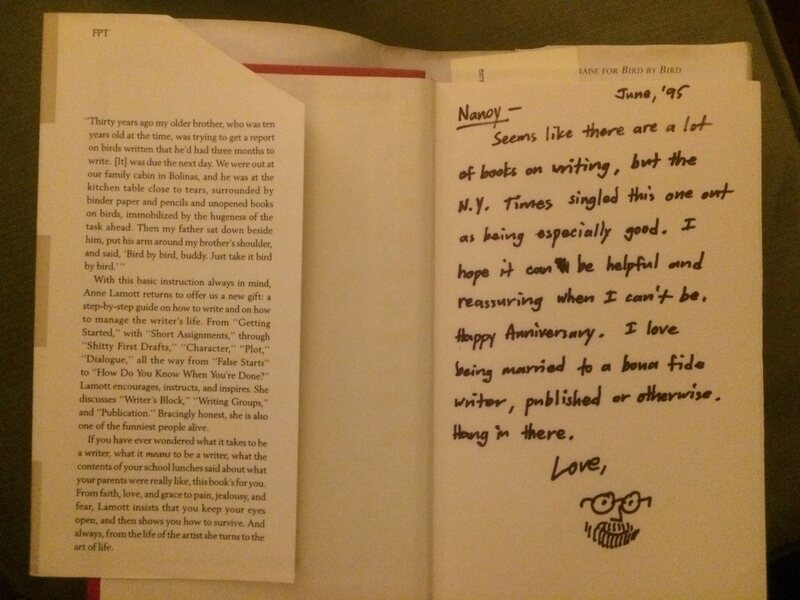 FPT
"Thirty years ago my older brother, who was ten
years old at the time, was trying to get a report
on birds written that he'd had three months to
write. [It] was due the next day. We were out at
our family cabin in Bolinas, and he was at the
kitchen table close to tears, surrounded by
binder paper and pencils and unopened books
on birds, immobilized by the hugeness of the
task ahead. Then my father sat down beside
him, put his arm around my brother's shoulder,
and said, 'Bird by bird, buddy. Just take it bird
by bird.'"
With this basic instruction always in mind,
Anne Lamott returns to offer us a new gift: a
step-by-step guide on how to write and on how
to manage the writer's life. From "Getting
Started," with "Short Assignments," through
"Shitty First Drafts," "Character," "Plot,"
"Dialogue," all the way from "False Starts"
to "How Do You Know When You're Done?"
Lamott encourages, instructs, and inspires. She
discusses "Writer's Block," "Writing Groups,"
and "Publication." Bracingly honest, she is also
one of the funniest people alive.
If you have ever wondered what it takes to be
a writer, what it means to be a writer, what the
contents of your school lunches said about what
your parents were really like, this book's for you.
From faith, love, and grace to pain, jealousy, and
fear, Lamott insists that you keep your eyes
open, and then shows you how to survive. And
always, from the life of the artist she turns to the
art of life.
RAISE FOR BIRD BY BIRD
June, '95
Nancy —
Seems like there are a lot
of books on writing, but the
N.Y. Times singled this one out
as being especially good. I
hope it can be helpful and
reassuring when I can't be.
Happy Anniversary. I love
being married to a bona fide
writer, published or otherwise.
Hang in there.
Love,